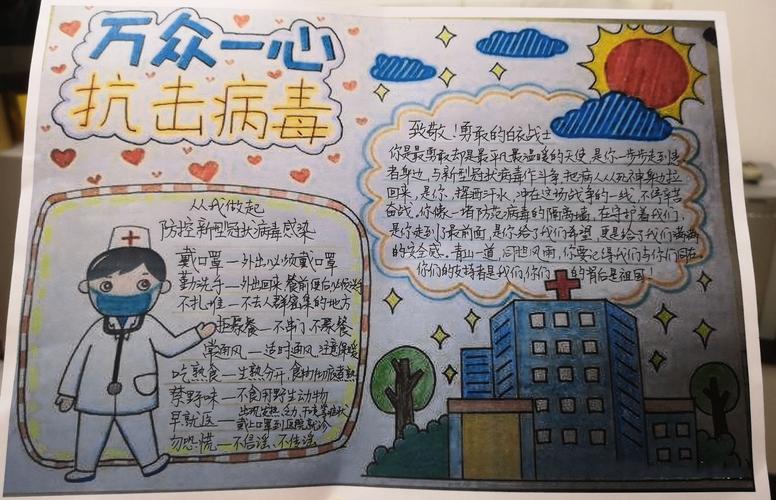 万众一心
抗击病毒
从我做起
防控新型冠状病毒感染
戴口罩—外出必须戴口罩
勤洗手—外出回来餐前便后必须洗手
不扎堆—不去人群密集的地方
拒聚餐—不串门不聚餐
常通风—适时通风,注意保暖
吃熟食—生熟分开,食物彻底煮熟
禁野味—不食用野生动物
早就医—出现发热、乏力、干咳等症状
戴上口罩到医院就诊
勿恐慌—不信谣、不传谣
致敬!勇敢的白衣战士
你是最勇敢却是最平凡最温暖的天使,是你一步步走到患
者身边,与新型冠状病毒作斗争,把病人从死神身边拉
回来,是你,挥洒汗水,冲在这场战争的一线,不怕辛苦
奋战。你像一堵防范病毒的隔离墙,在守护着我们,
是你走到了最前面,是你给了我们希望,更是给了我们满满
的安全感。青山一道,同担风雨,你要记得我们与你们同在
你们的支持者是我们,你们的背后是祖国!